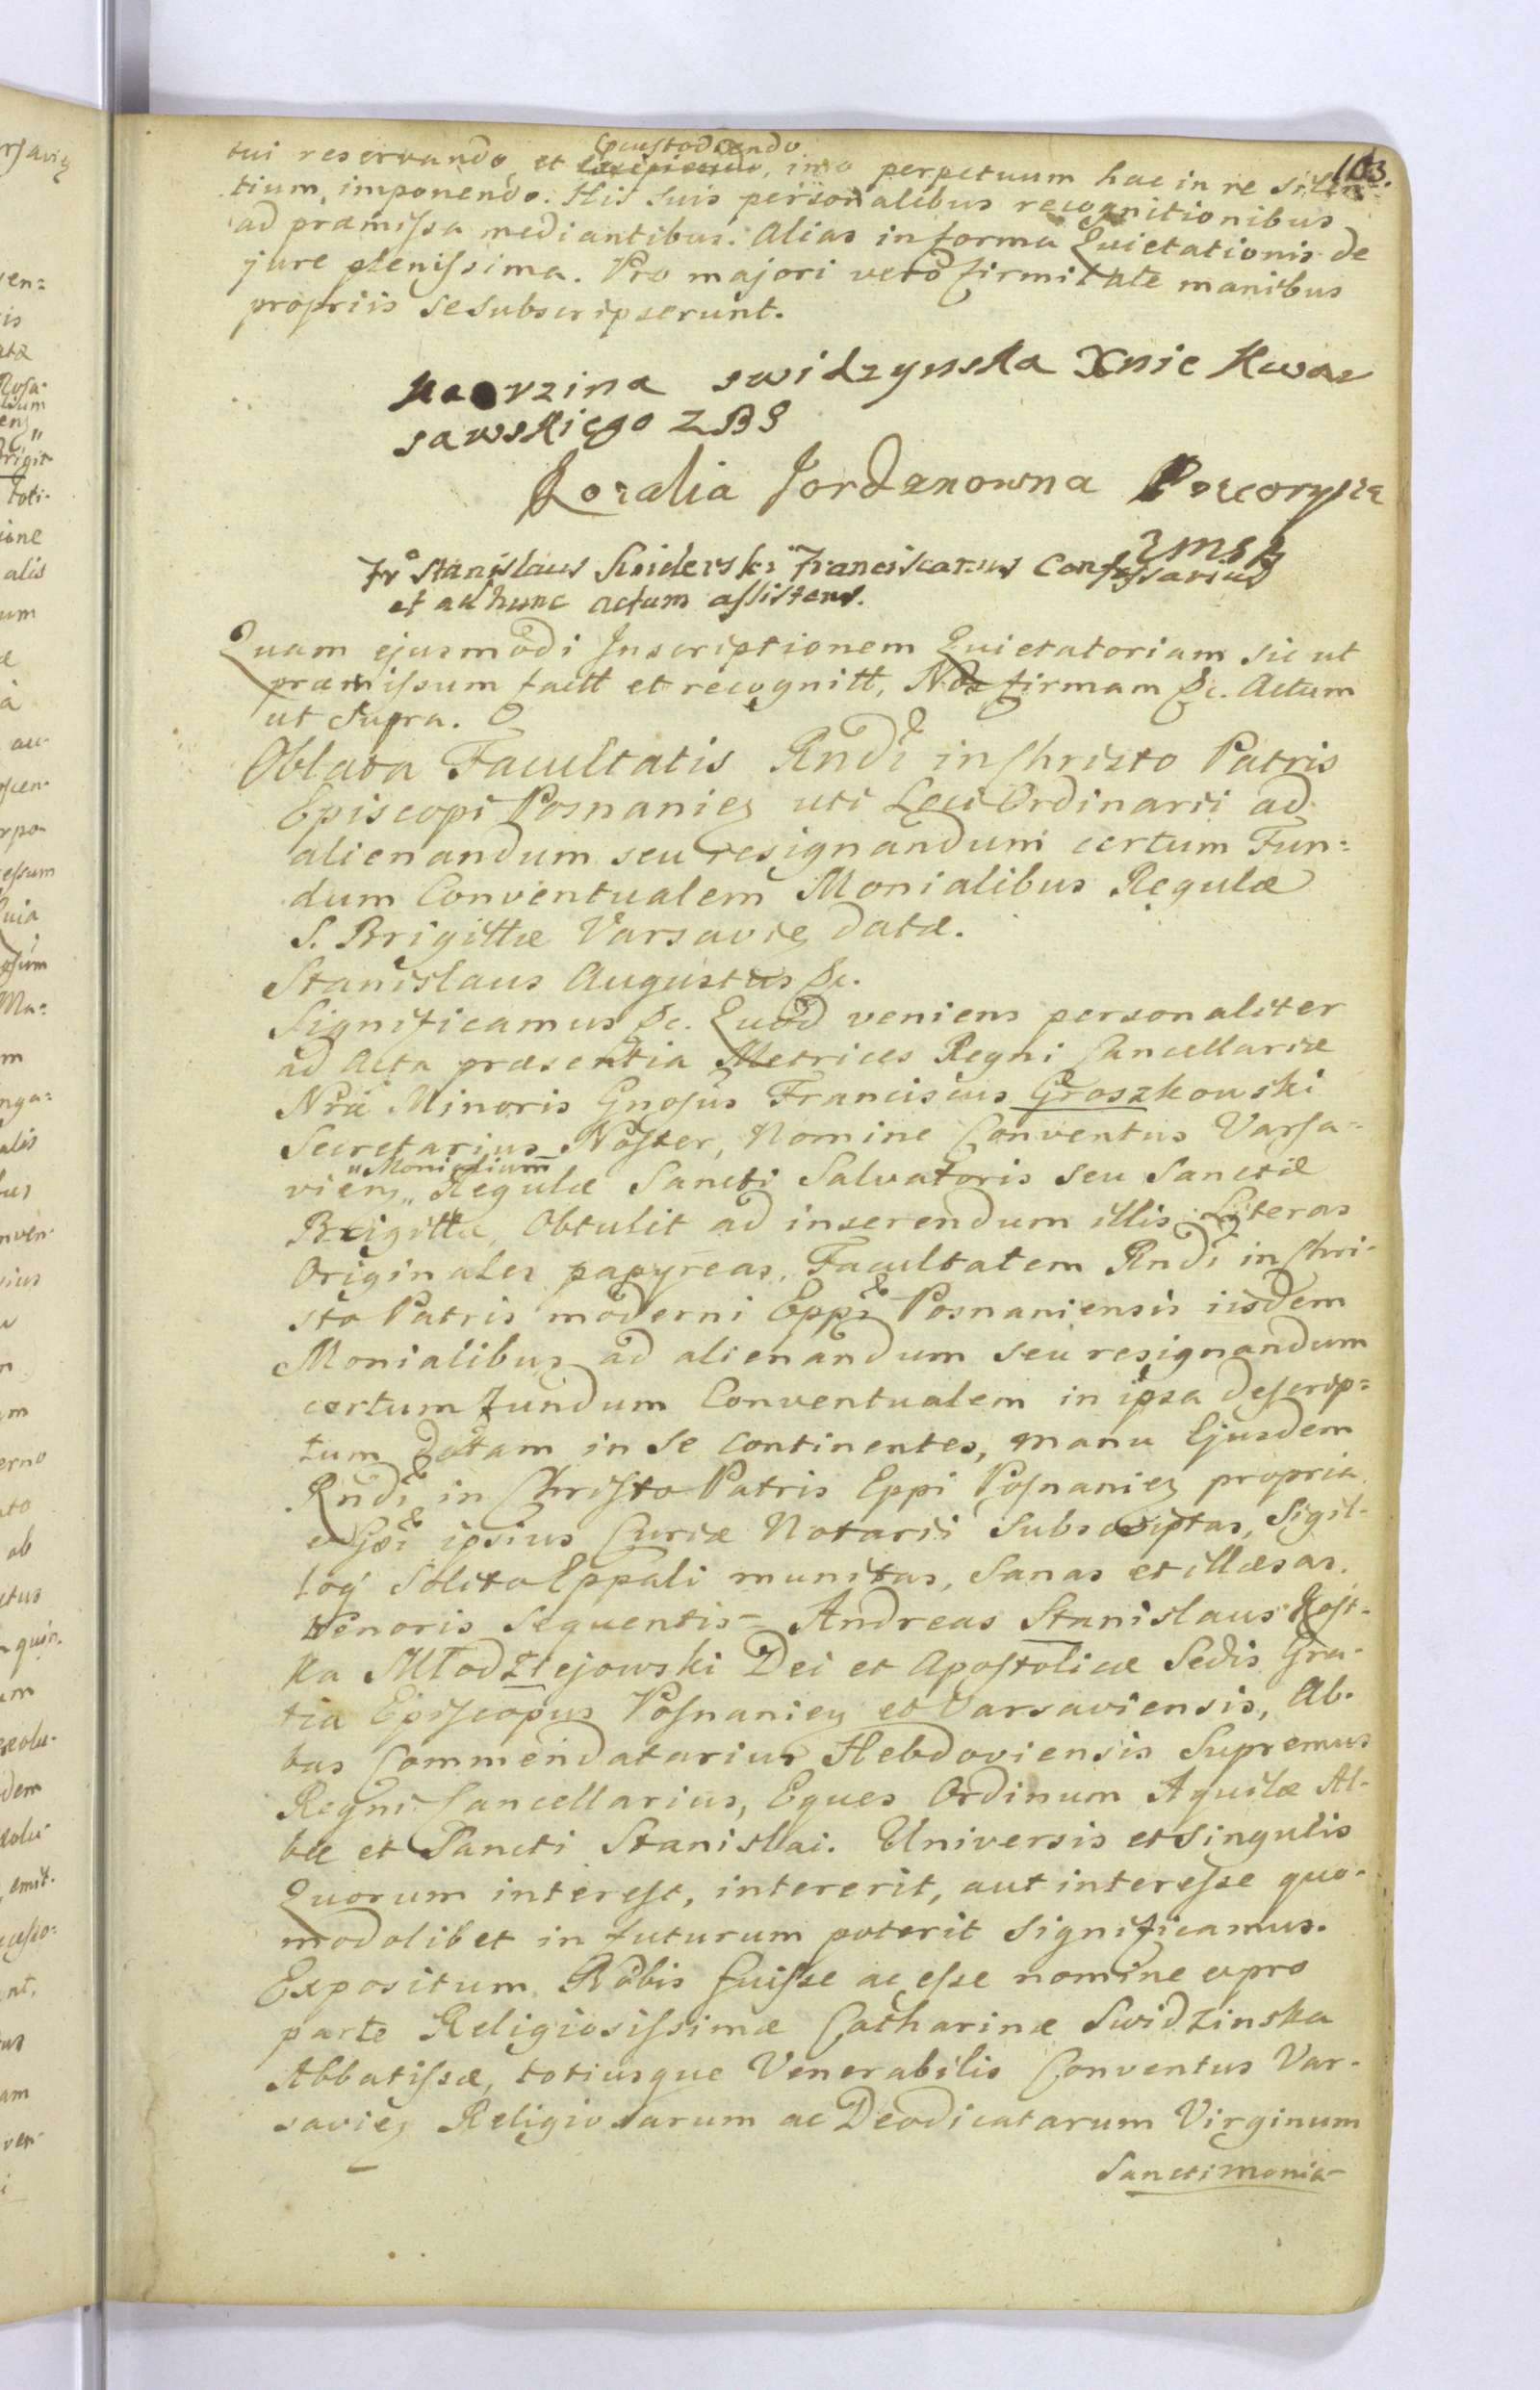 103.
tui reservando, et custodiendo, imo perpetuum hac in re silen=
tium, imponendo. His suis personalibus recognitionibus
ad præmissa mediantibus. Alias in forma Quietationis de
jure plenissima. Pro majori vero firmitate manibus
propriis se subscripserunt.
swidzynska Xnie Kwar
sawskiego ZBS
Rozalia Jordanowna
Fr Stanislaus Sciderski Franciscanus Confessarius
et ad hunc actum assistens.
Quam ejusmodi Inscriptionem Quietatoriam sic ut
præmissum factt et recognitt, Nos firmam &c. Actum
ut Supra.
Oblata Facultatis Rndi in Christo Patris
Episcopi Posnanien uti Loci Ordinarii ad
alienandum seu resignandum certum Fun=
dum Conventualem Monialibus Regulæ
S. Brigittæ Varsavien datæ.
Stanislaus Augustus &c.
Significamus &c. Quod veniens personaliter
ad Acta præsentia Metrices Regni Cancellariæ
Nræ Minoris Gnosus Franciscus Groszkowski
Secretarius Noster, Nomine Conventus Varsa=
vien " Monialium Regulæ Sancti Salvatoris seu Sanctæ
Brigittæ, Obtulit ad inserendum illis Literas
Originales papyreas, Facultatem Rndi in Chri=
sto Patris moderni Eppi Posnaniensis iisdem
Monialibus ad alienandum seu resignandum
certum fundum Conventualem in ipsa descrip=
tum datam in se continentes, manu Ejusdem
Rndi in Christo Patris Eppi Posnanien propria
ipsius Curiæ Notarii subscriptas, Sigil=
loq solito Eppali munitas, sanas et illæsas.
tenoris sequentis= Andreas Stanislaus Kost=
ka Młodziejowski Dei et Apostolicæ Sedis Gra=
tia Episcopus Posnanien et Varsaviensis, Ab=
bas Commendatarius Hebdoviensis Supremus
Regni Cancellarius, Eques Ordinum Aquilæ Al=
bæ et Sancti Stanislai. Universis et singulis
Quorum interest, intererit, aut interesse quo=
modolibet in futurum poterit significamus.
Expositum Nobis fuisse ac esse nomine expro
parte Religiosissimæ Catharinæ Swidzinska
Abbatissæ, totiusque Venerabilis Conventus Var=
savien Religiosarum ac Deodicatarum Virginum
Sanctimonia=